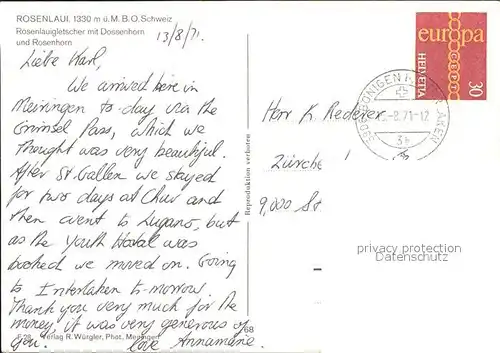 ROSENLAUI. 1330 m ü. M. B. O. Schweiz
Rosenlauigletscher mit Dossenhorn
und Rosenhorn
13/8/71.
Liebe Karl,
We arrived here in
Meiringen to-day via the
Grimsel Pass, which we
thought was very beautiful.
After St. Gallen we stayed
for two days at Chur and
then went to Lugano, but
as the Youth Hostel was
booked we moved on. Going
to Interlaken to-morrow.
Thank you very much for the
money, it was very generous of
you. love Annamarie
Verlag R. Würgler, Phot. Meiringen
68
Reproduktion verboten
europa
HELVETIA
30
-8.71-12
3b
Herr K. Rederer
Zürcher 1
9,000 St
privacy protection
Datenschutz